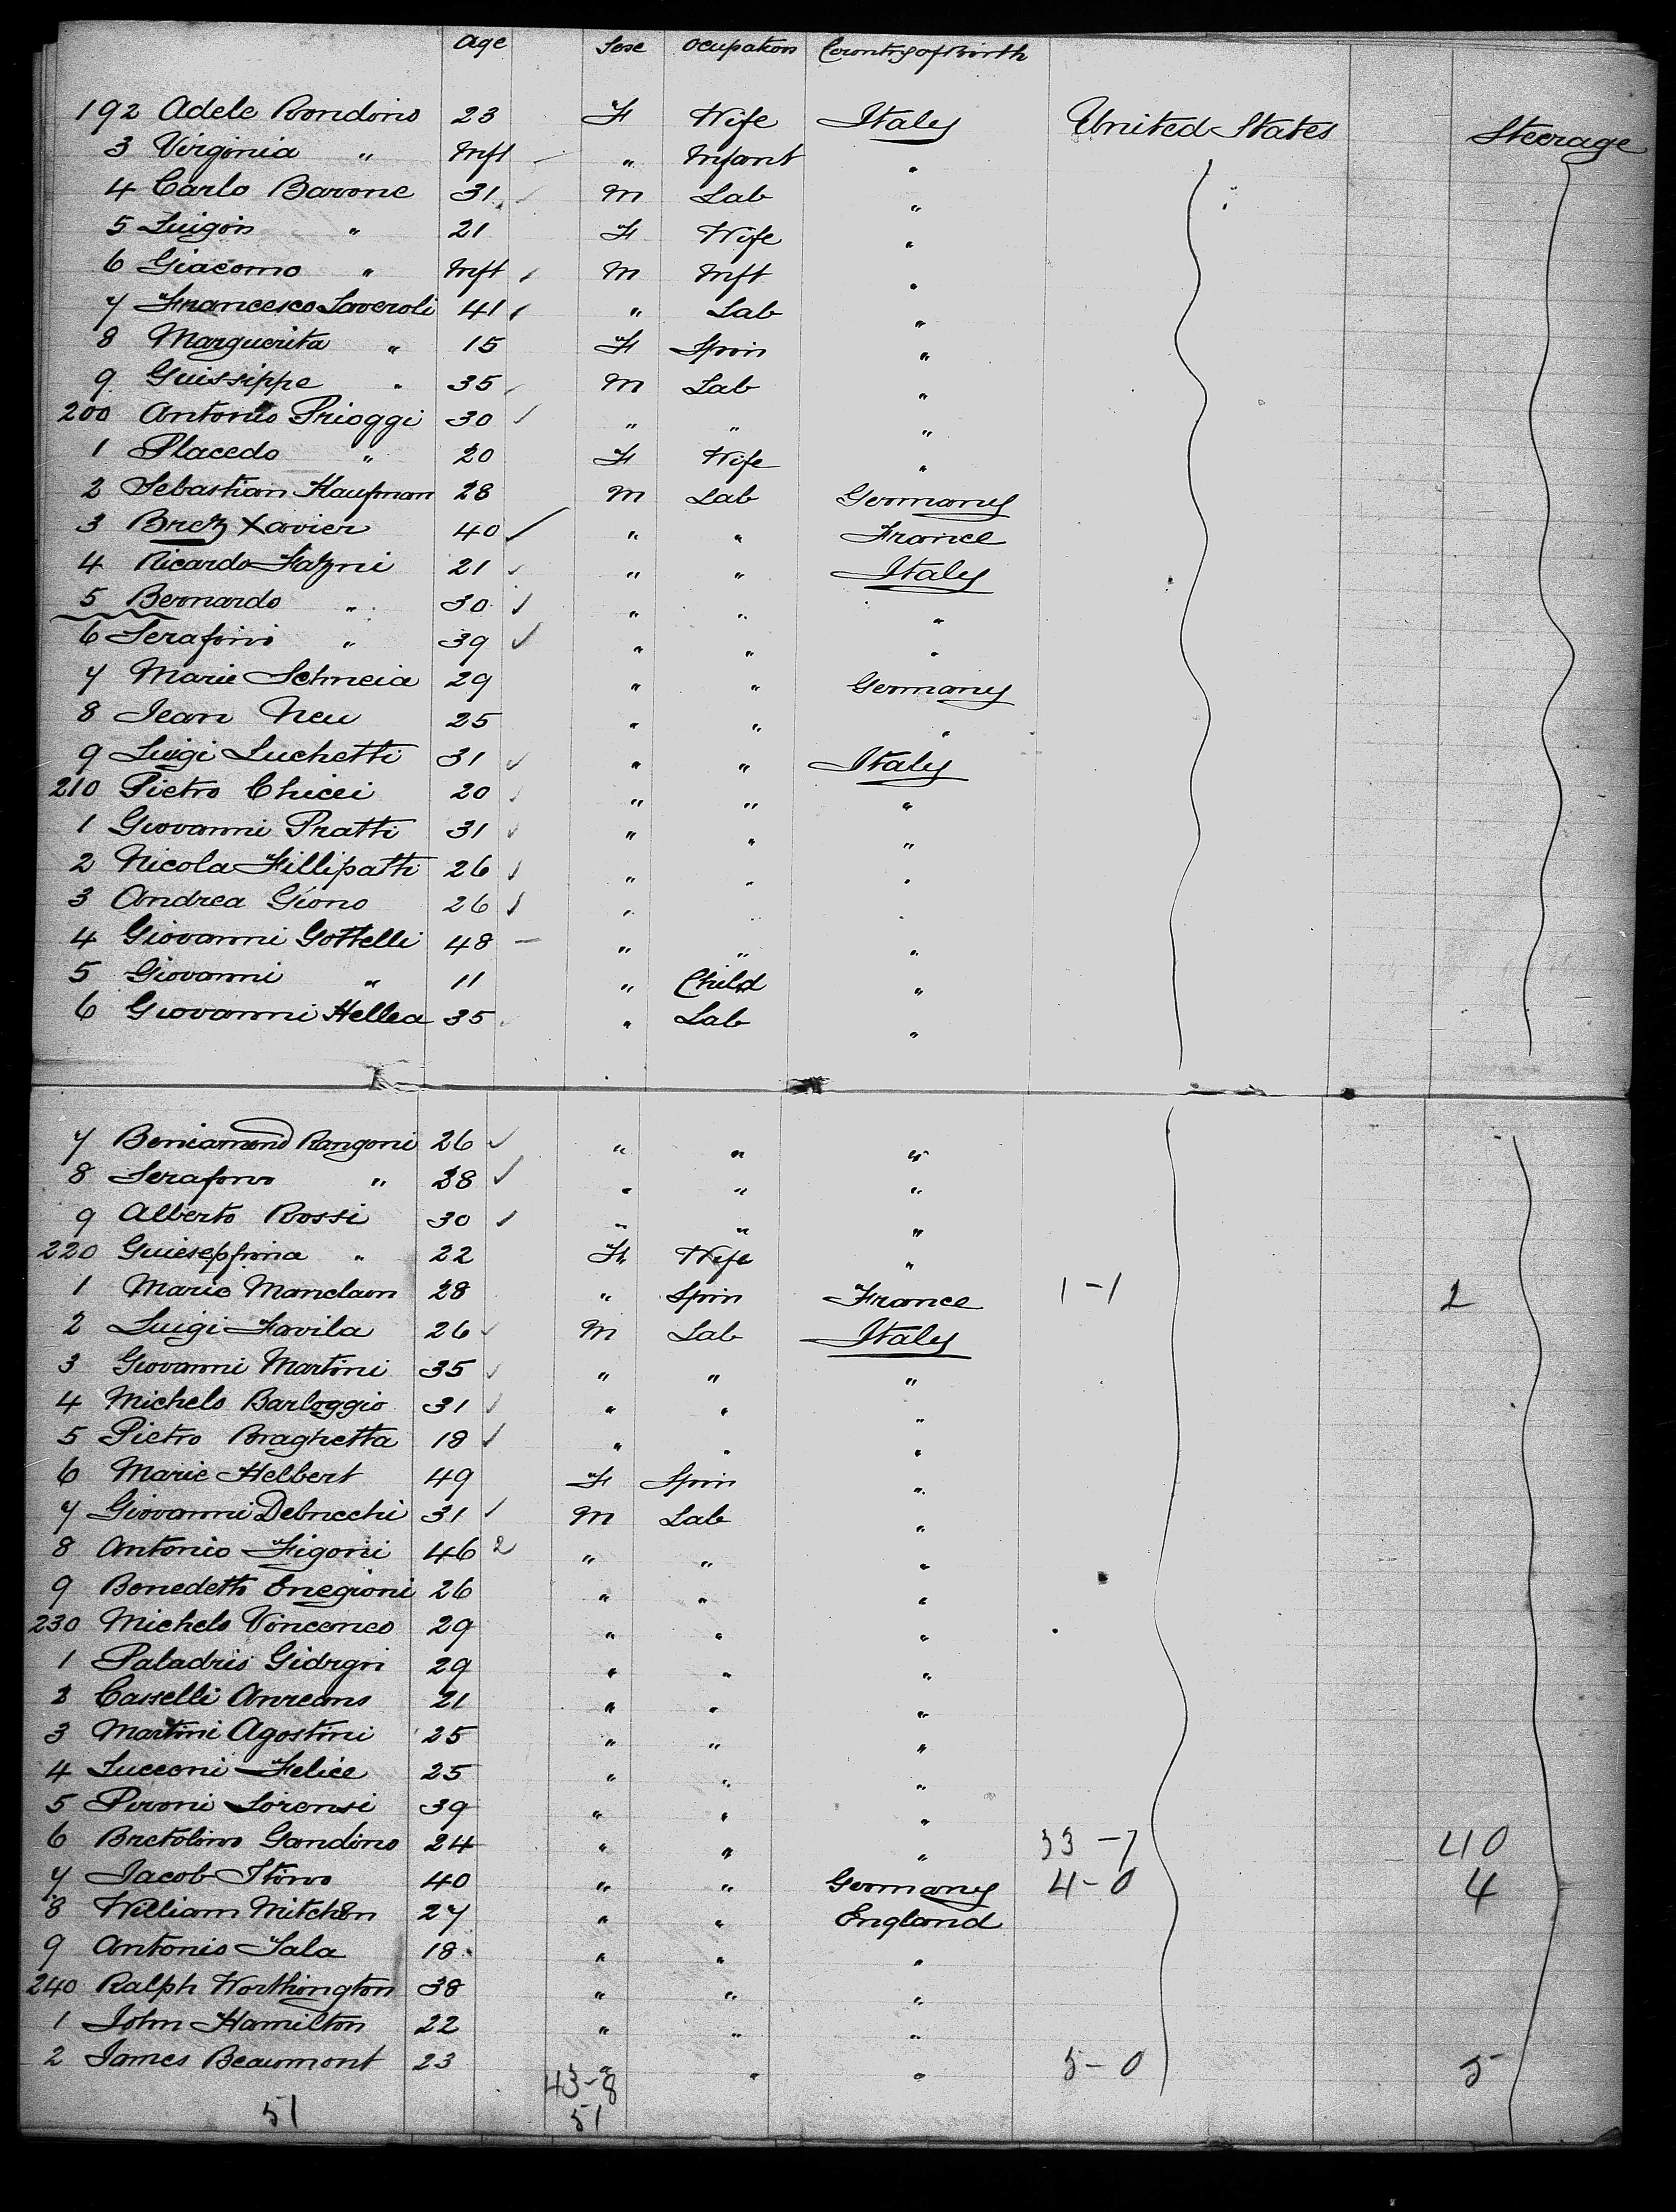 Age Sex Ocupation Country of Birth
192 Adele Rondino 23 F Wife Italy United States Steerage
3 Virginia " Inft " Infant "
4 Carlo Barone 31 M Lab "
5 Luigin " 21 F Wife "
6 Giacomo " Inft M Inft "
7 Francesco Saveroli 41 " Lab "
8 Marguerita " 15 F Spin "
9 Guissippe " 35 M Lab "
200 Antonio Prioggi 30 " " "
1 Placedo " 20 F Wife "
2 Sebastian Kaufman 28 M Lab Germany
3 Bretz Xavier 40 " " France
4 Ricardo Fatzni 21 " " Italy
5 Bernardo " 30 " " "
6 Serafino " 39 " " "
7 Marie Schneia 29 " " Germany
8 Jean Neu 25 " " "
9 Luigi Luchetti 31 " " Italy
210 Pietro Chicei 20 " " "
1 Giovanni Pratti 31 " " "
2 Nicola Fillipatti 26 " " "
3 Andrea Giono 26 " " "
4 Giovanni Gottelli 48 " " "
5 Giovanni " 11 " Child "
6 Giovanni Hellea 35 " Lab "
7 Beniamono Rangoni 26 " " "
8 Serafino " 38 " " "
9 Alberto Rossi 30 " " "
220 Guieseppina " 22 F Wife "
1 Marie Manclaon 28 " Spin France 1-1 2
2 Luigi Favila 26 M Lab Italy
3 Giovanni Martini 35 " " "
4 Michelo Barloggio 31 " " "
5 Pietro Braghetta 18 " " "
6 Marie Helbert 49 F Spin "
7 Giovanni Delnecchi 31 M Lab "
8 Antonio Figonei 46 " " "
9 Benedetto Enegioni 26 " " "
230 Michelo Vincenco 29 " " "
1 Paladris Gidrgri 29 " " "
2 Casselli Anreano 21 " " "
3 Martini Agostini 25 " " "
4 Lucconi Felice 25 " " "
5 Peroni Lorensi 39 " " "
6 Bretolino Gandino 24 " " " 33-7 40
7 Jacob 40 " " Germany 4-0 4
8 William 27 " " England
9 Antonio Sala 18 " " "
240 Ralph Worthington 38 " " "
1 John Hamilton 22 " " "
2 James Beaumont 23 " " " 5-0 5
43-8
51 51